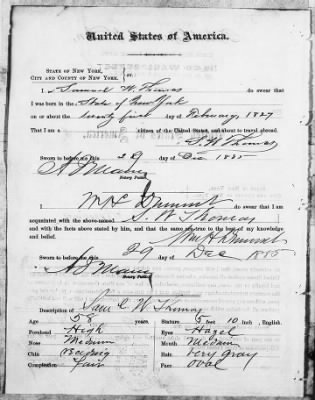 United States of America.
STATE OF NEW YORK,
CITY AND COUNTY OF NEW YORK, } ss:
I Samuel W. Thomas do swear that
I was born in the State of New York
on or about the twenty first day of February, 1827
That I am a citizen of the United States, and about to travel abroad.
S. W. Thomas
Sworn to before me this 29 Dec 1885
Notary Public.
I do swear that I am
acquainted with the above-named S. W. Thomas
and with the facts above stated by him, and that the same are true to the best of my knowledge
and belief.
Sworn to before me this 29 Dec 1885
Notary Public.
Description of W. Thomas
Age 58 years. Stature 5 feet 10 inch, English.
Forehead High Eyes Hazel
Nose Medium Mouth Medium
Chin Receding Hair Very gray
Complexion Fair Face Oval